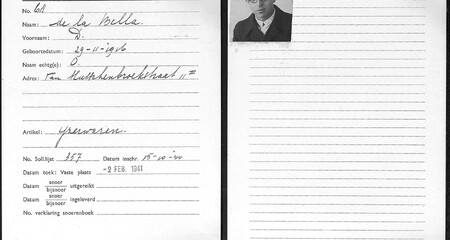 No. 68
Naam: de la Bella.
Voornaam: D.
Geboortedatum: 29-11-1916
Naam echtg(e): O.
Adres: Van Hutschenbroekstraat 11
Artikel: Yzerwaren.
No. Soll.lijst 357 Datum inschr. 15-10-40
Datum toek: Vaste plaats -2 FEB. 1941
Datum snoer
bijsnoer uitgereikt
Datum snoer
bijsnoer ingeleverd
No. verklaring snoerenboek